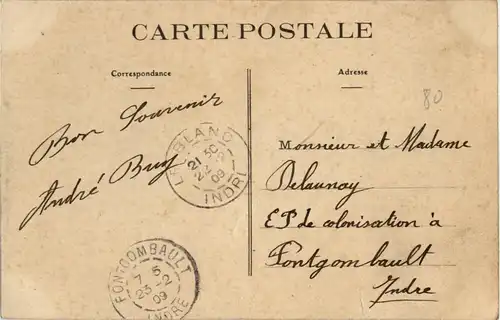 CARTE POSTALE
Correspondance
Adresse
80
Bon Souvenir
André Buy
Monsieur et Madame
Delaunay
EP de colonisation à
Fontgombault
Indre
LE BLANC
21 30
22 2
09
INDRE
FONTGOMBAULT
7 5
23 2
09
INDRE